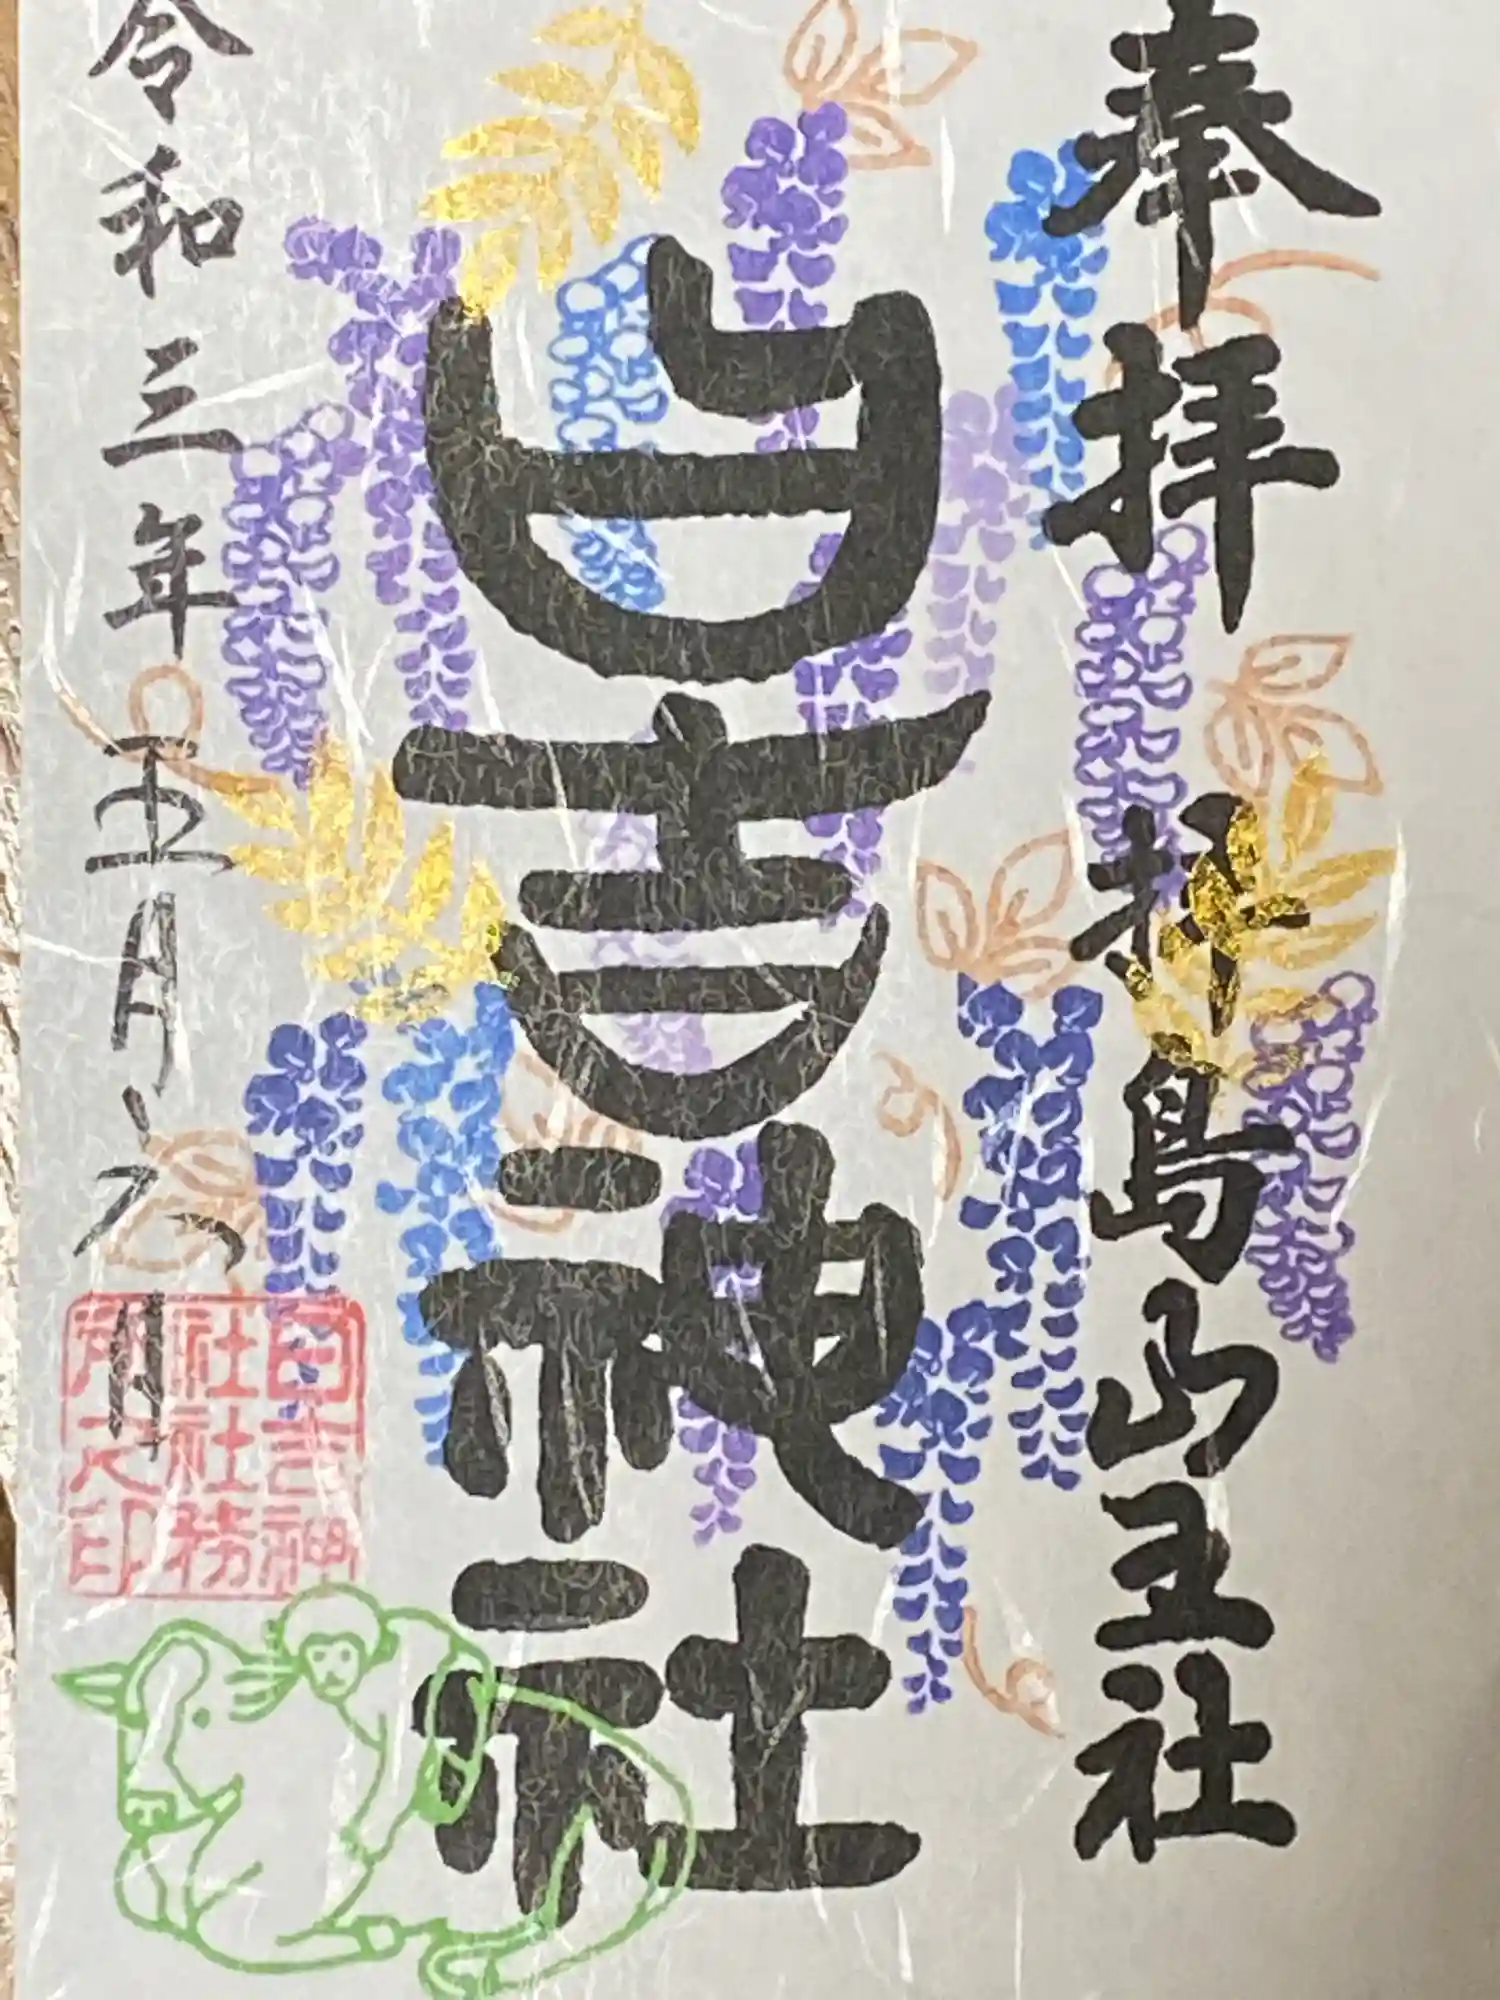 奉拝 拝島山王社
日吉神社
令和三年五月六日
日吉神
社社務
所之印